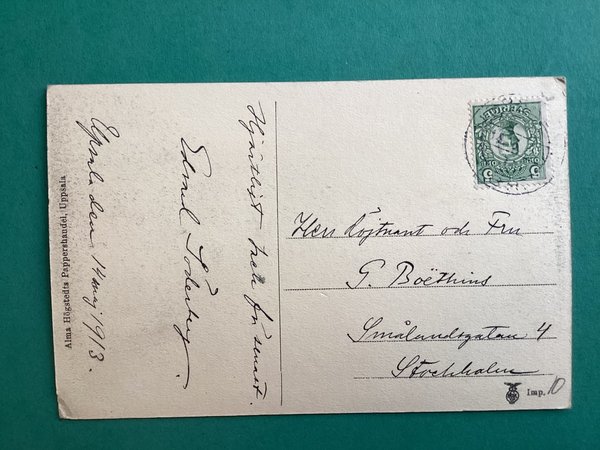 Hjärtligt tack för senast.
Edvard Söderberg.
Upsala den 14 maj 1913.
Alma Högstedts Pappershandel, Uppsala
SVERIGE
5 5
Herr Löjtnant och Fru
G. Boëthius
Smålandsgatan 4
Stockholm
Imp. 10